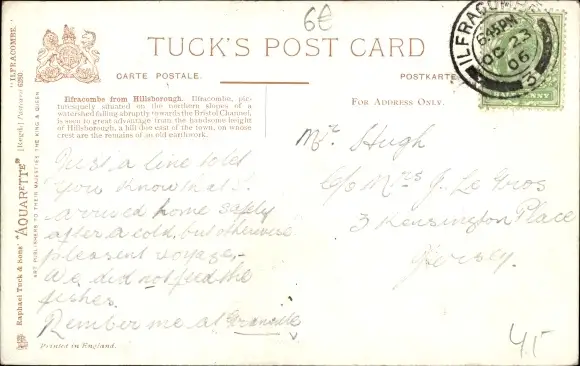 6€
TUCK'S POST CARD
CARTE POSTALE.
POSTKARTE
ILFRACOMBE
6 45 PM
OC 23
06
3
"ILFRACOMBE."
[Regd.] Postcard
Raphael Tuck & Sons' "AQUARETTE"
ART PUBLISHERS TO THEIR MAJESTIES THE KING & QUEEN
Ilfracombe from Hillsborough. Ilfracombe, pic-
turesquely situated on the northern slopes of a
watershed falling abruptly towards the Bristol Channel,
is seen to great advantage from the handsome height
of Hillsborough, a hill due east of the town, on whose
crest are the remains of an old earthwork.
FOR ADDRESS ONLY.
Just a line to let
you know that I
arrived home safely
after a cold, but otherwise
pleasant voyage,-
We did not feed the
fishes.
Rember me at Granville
Hugh
C/o Mrs J. Le Gros
3 Kensington Place
Jersey.
45
Printed in England.